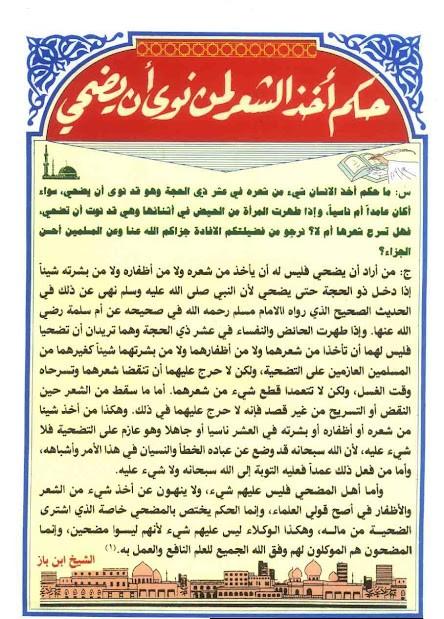 حكم أخذ الشعر لمن نوى أن يضحي
س: ما حكم أخذ الانسان شيء من شعره في عشر ذي الحجة وهو قد نوى أن يضحي، سواء
أكان عامداً أم ناسياً، وإذا طهرت المرأة من الحيض في أثنائها وهي قد نوت أن تضحي،
فهل تسرح شعرها أم لا؟ نرجو من فضيلتكم الافادة جزاكم الله عنا وعن المسلمين أحسن
الجزاء؟
ج: من أراد أن يضحي فليس له أن يأخذ من شعره ولا من أظفاره ولا من بشرته شيئاً
إذا دخل ذو الحجة حتى يضحي لأن النبي صلى الله عليه وسلم نهى عن ذلك في
الحديث الصحيح الذي رواه الامام مسلم رحمه الله في صحيحه عن أم سلمة رضي
الله عنها. وإذا طهرت الحائض والنفساء في عشر ذي الحجة وهما تريدان أن تضحيا
فليس لهما أن تأخذا من شعرهما ولا من أظفارهما ولا من بشرتهما شيئاً كغيرهما من
المسلمين العازمين على التضحية، ولكن لا حرج عليهما أن تنقضا شعرهما وتسرحاه
وقت الغسل، ولكن لا تتعمدا قطع شيء من شعرهما. أما ما سقط من الشعر حين
النقض أو التسريح من غير قصد فإنه لا حرج عليهما في ذلك. وهكذا من أخذ شيئا
من شعره أو أظفاره أو بشرته في العشر ناسيا أو جاهلا وهو عازم على التضحية فلا
شيء عليه، لأن الله سبحانه قد وضع عن عباده الخطأ والنسيان في هذا الأمر وأشباهه،
وأما من فعل ذلك عمداً فعليه التوبة إلى الله سبحانه ولا شيء عليه.
وأما أهل المضحي فليس عليهم شيء، ولا ينهون عن أخذ شيء من الشعر
والأظفار في أصح قولي العلماء، وإنما الحكم يختص بالمضحي خاصة الذي اشترى
الضحية من ماله، وهكذا الوكلاء ليس عليهم شيء لأنهم ليسوا مضحين، وإنما
المضحون هم الموكلون لهم وفق الله الجميع للعلم النافع والعمل به.(١)
الشيخ ابن باز